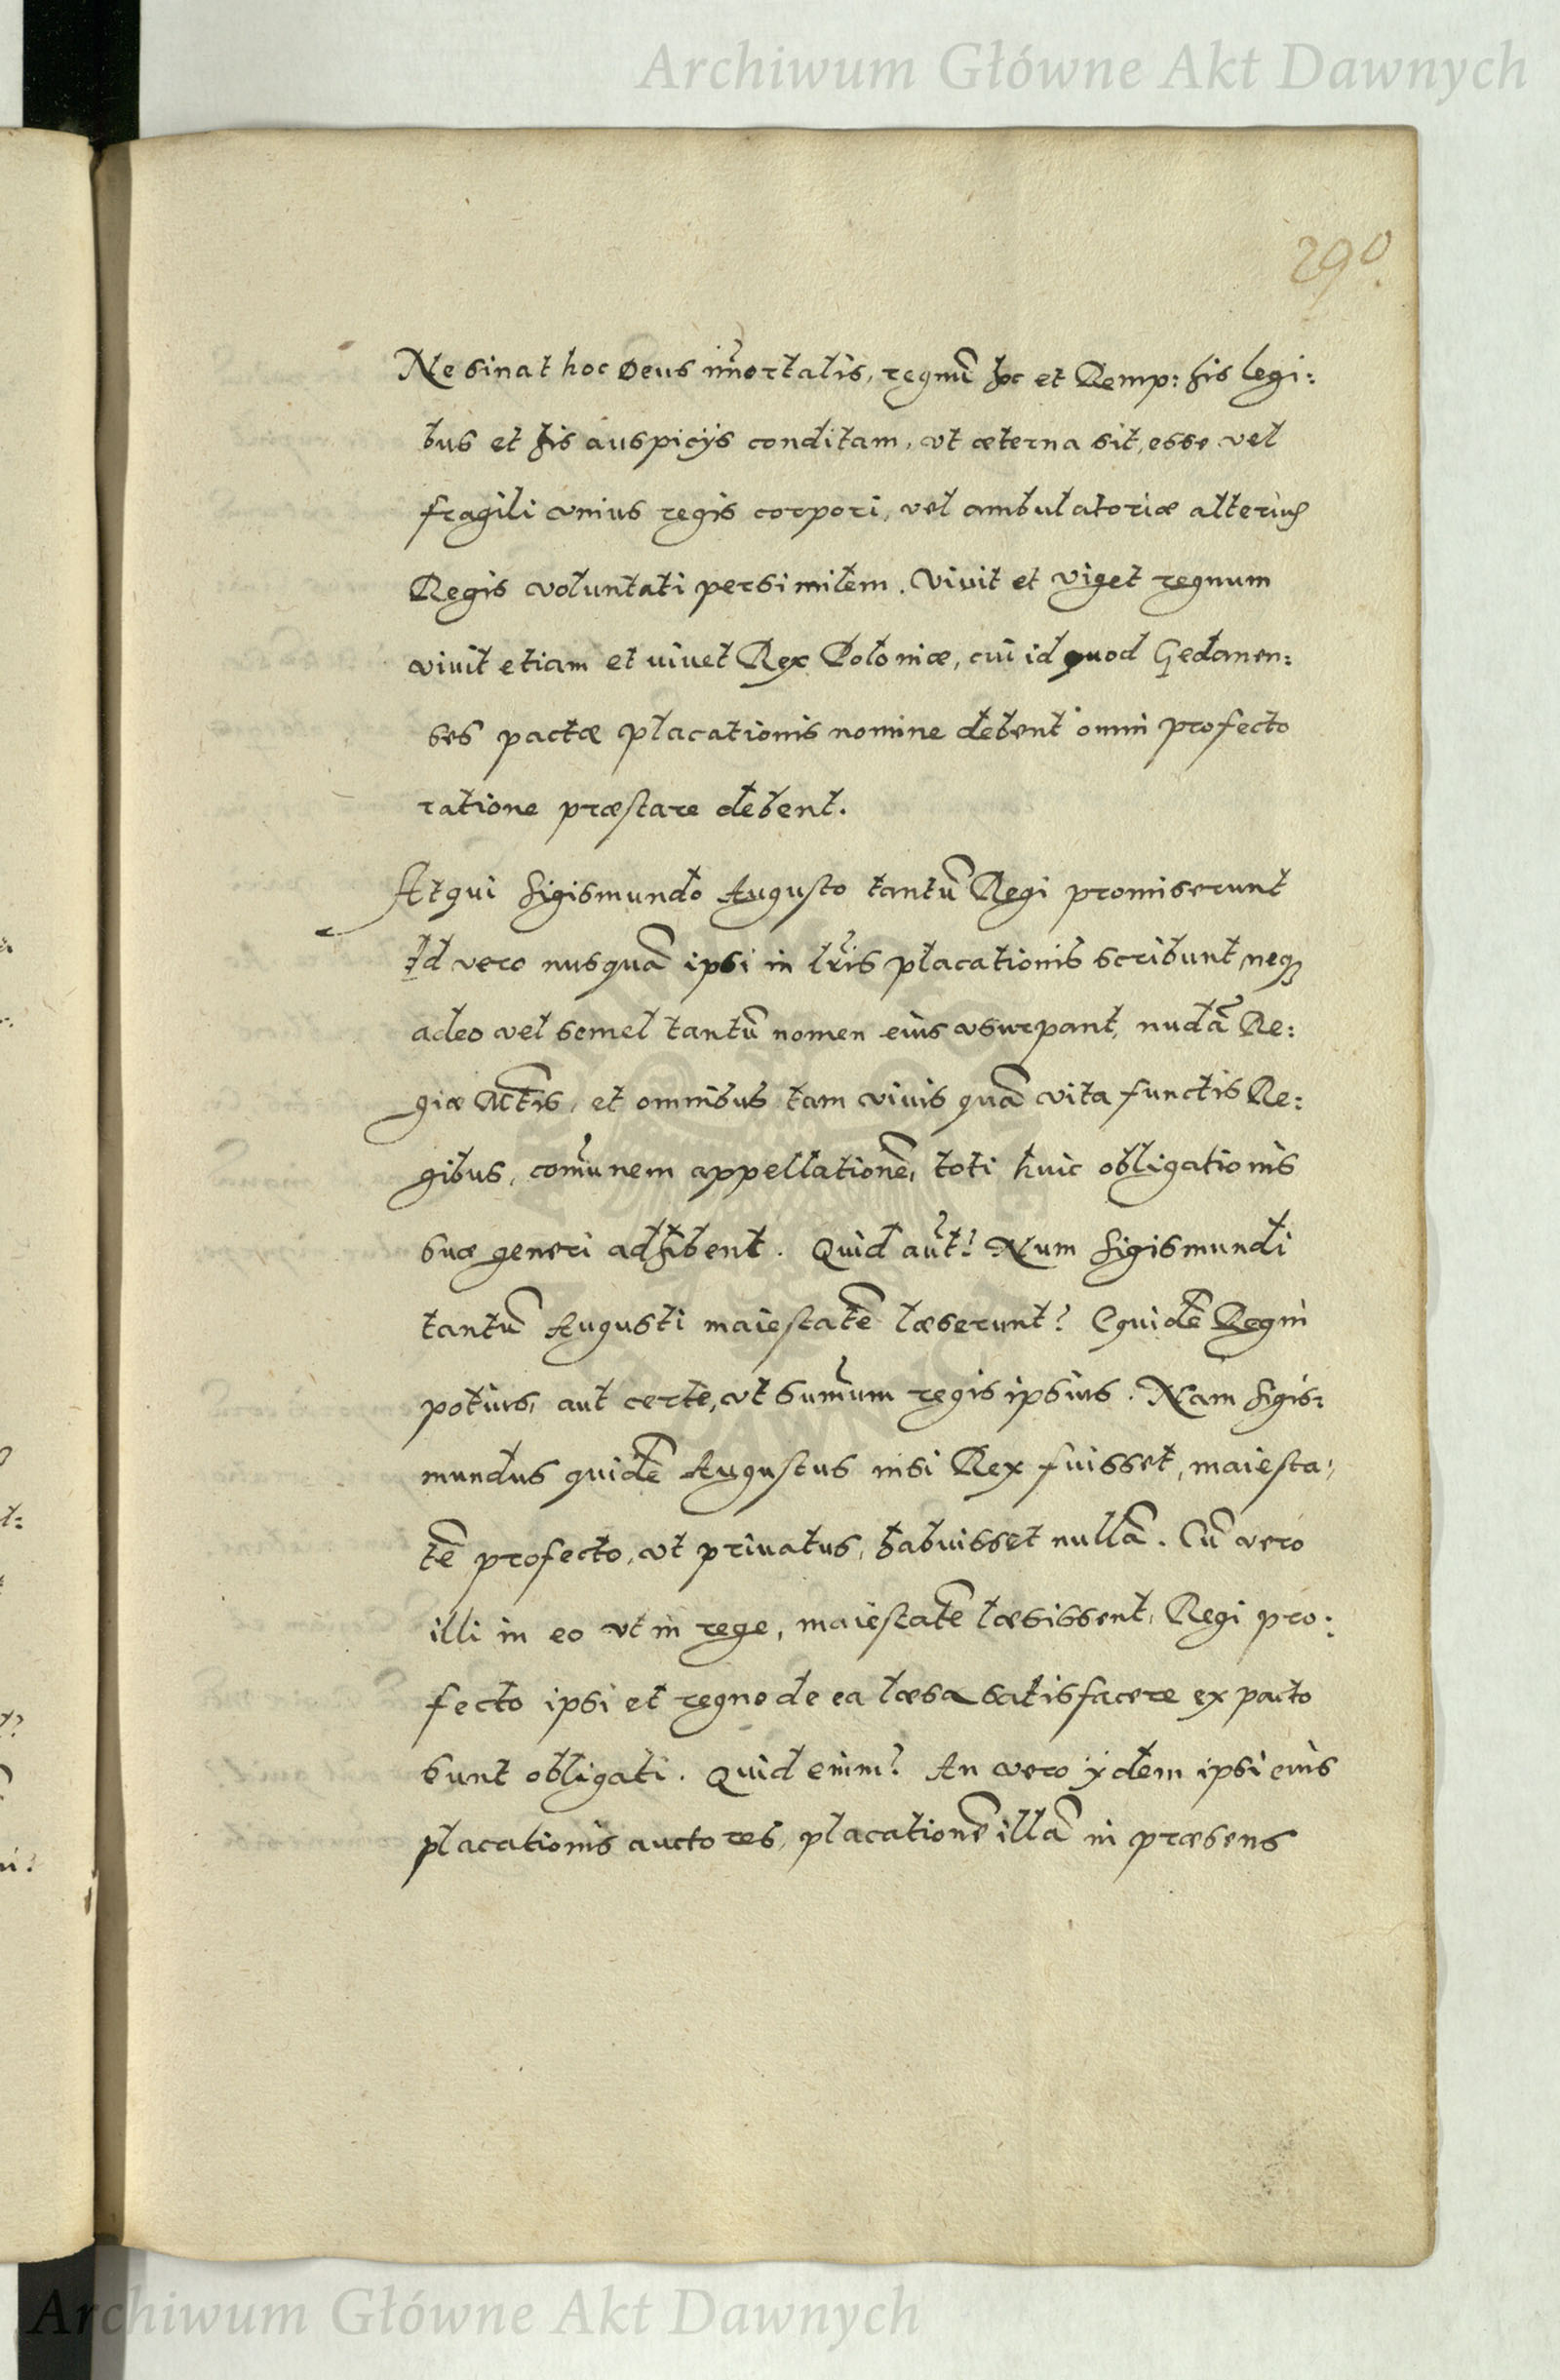 Archiwum Główne Akt Dawnych
290.
Ne sinat hoc Deus im̃ortalis, regnũ hoc et Remp: his legi:
bus et his auspicijs conditam, vt æterna sit, esse vel
fragili vnius regis corpori, vel ambulatoriæ alterius
Regis voluntati persimilem. Viuit et viget regnum
viuit etiam et viuet Rex Poloniæ, cui id quod Gedanen:
ses pactæ placationis nomine debent omni profecto
ratione præstare debent.
Atqui Sigismundo Augusto tantũ Regi promiserunt
Id vero nusquã ipsi in lr̃is placationis scribunt, neq;
adeo vel semel tantũ nomen eius vsurpant, nudã Re:
giæ Mt̃is, et omnibus tam viuis quã vita functis Re:
gibus, com̃unem appellationẽ, toti huic obligationis
suæ generi adhibent. Quid aũt? Num Sigismundi
tantũ Augusti maiestatẽ læserunt? Equidẽ Regni
potius, aut certe, vt sum̃um regis ipsius. Nam Sigis:
mundus quidẽ Augustus nisi Rex fuisset, maiesta:
tẽ profecto, vt priuatus, habuisset nullã. Cũ vero
illi in eo vt in rege, maiestatẽ læsissent, Regi pro:
fecto ipsi et regno de ea læsa satisfacere ex pacto
sunt obligati. Quid enim? An vero ijdem ipsi eius
placationis auctores, placationẽ illã in præsens
Archiwum Główne Akt Dawnych